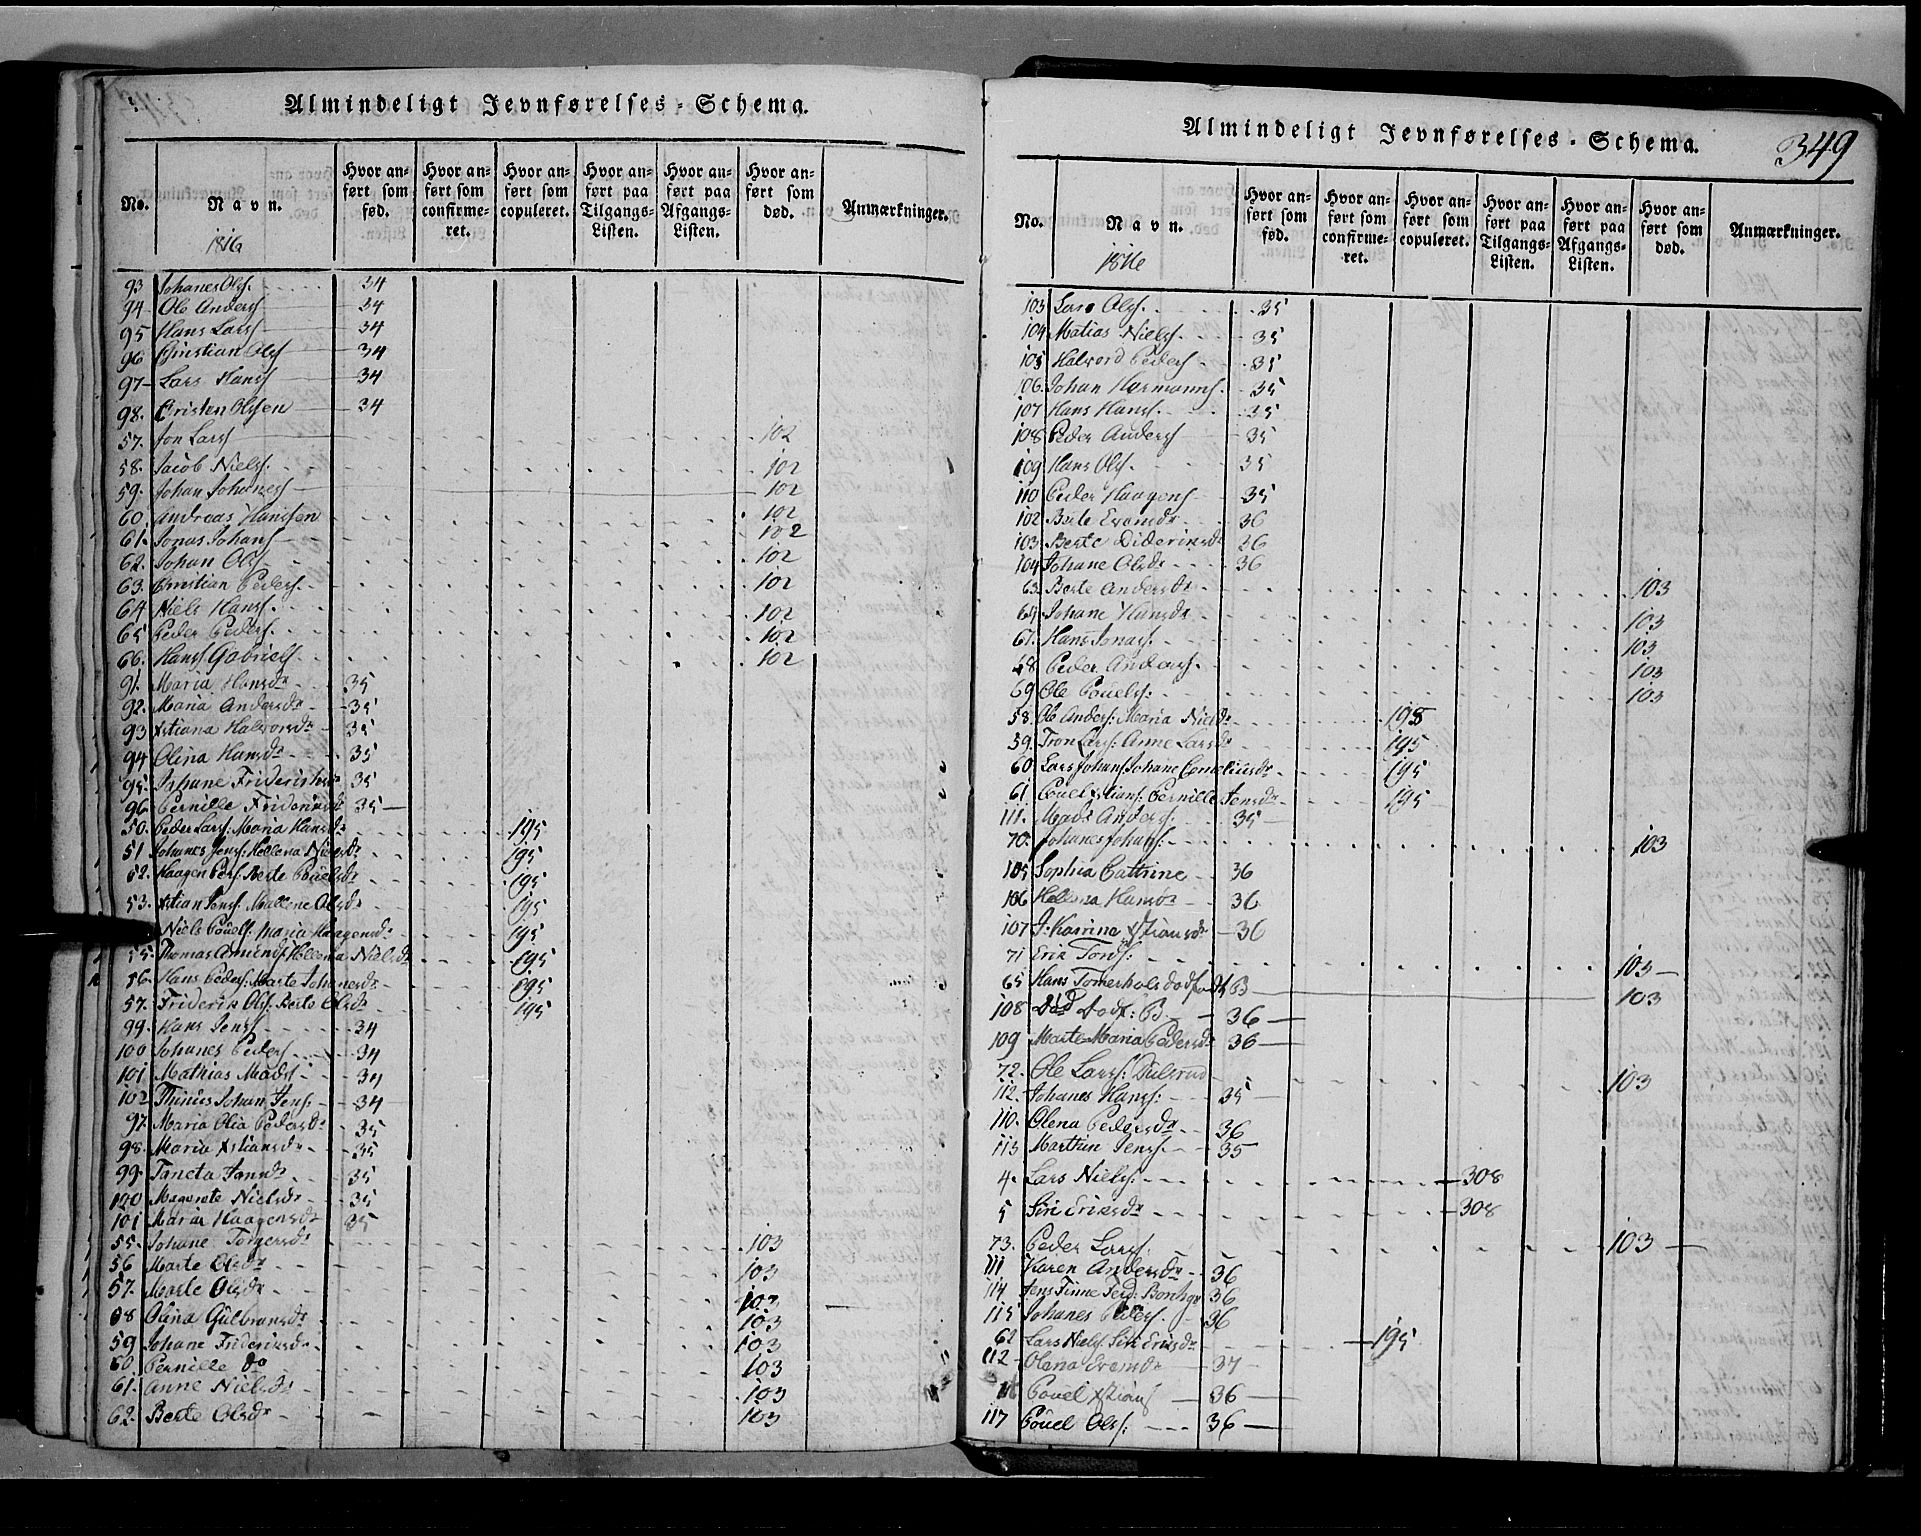 Almindeligt Jevnførelses-Schema.
No. Navn. Hvor anført som fød. Hvor anført som confirmeret. Hvor anført som copuleret. Hvor anført paa Tilgangs-Listen. Hvor anført paa Afgangs-Listen. Hvor anført som død. Anmærkninger.
1816
93 Johanes Ols. 34
94 Ole Anders 34
95 Hans Lars 34
96 Christian Ols 34
97 Lars Hans 34
98. Cristen Olssen 34
57. Jon Lars 102
58. Jacob Niels. 102
59. Johan Johanes 102
60. Andreas Hanssen 102
61. Jonas Johans 102
62. Johan Ols 102
63. Christian Peders. 102
64 Niels Hans. 102
65 Peder Peders. 102
66. Hans Gabriels 102
91. Maria Hansdr 35
92. Maria Andersdr 35
93 Xstiana Halvorsdr 35
94 Olina Hansdr 35
95. Johane Friderichsdr 35
96 Pernille Fridrichsdr 35
50. Peder Lars: Maria Hansdr 195
51 Johanes Jens: Hellena Nielsdr 195
52. Haagen Pers: Berte Pouelsdr 195
53. Xstian Jens: Mallene Olsdr 195
Niels Pouels: Maria Haagensdr 195
55. Thomas Amunds: Hellena Nielsdr 195
56. Hans Peders: Marte Johanesdr 195
57. Friderik Ols: Berte Olsdr 195
99. Hans Jens 34
100 Johanes Peders 34
101 Mathias Mads 34
102 Thinius Johan Jens: 34
97. Maria Olia Pedersdr 35
98. Maria Xstiansdr 35
99. Taneta Jansdr 35
100 Magrete Nielsdr 35
101 Maria Haagensdr 35
55. Johane Torgersdr 103
56 Marte Olsdr 103
57. Marte Olsdr 103
58 Olina Gulbransdr 103
59 Johane Friderichsdr 103
60 Pernille do 103
61. Anne Nielsdr 103
62. Berte Olsdr 103
Almindeligt Jevnførelses-Schema. 349
No. Navn. Hvor anført som fød. Hvor anført som confirmeret. Hvor anført som copuleret. Hvor anført paa Tilgangs-Listen. Hvor anført paa Afgangs-Listen. Hvor anført som død. Anmærkninger.
1816
103 Lars Ols. 35
104 Matias Niels. 35
105 Halvord Peders 35
106. Johan Hermanns. 35
107 Hans Hans. 35
108 Peder Anders 35
109 Hans Ols. 35
110 Peder Haagens 35
102 Berte Evensdr 36
103 Berte Dideriksdr 36
104 Johane Olsdr 36
63. Berte Andersdr 103
64 Johane Hansdr 103
67. Hans Jonas. 103
68 Peder Anders. 103
69 Ole Pouels: 103
58. Ole Anders: Maria Nielsdr 195
59. Tron Lars: Anne Larsdr 195
60 Lars Johans Johane Corneliusdr 195
61 Pouel Xstians: Pernille Jensdr 195
111. Mads Anders. 35
70. Johanes Johans: 103
105 Sophia Cathrine 36
106 Hellena Hansdr 36
107 J. Katrina Xstiansdr 36
71 Erik Tords: 103
65 Hans 103
108 36
109 Marte Maria Pedersdr 36
72. Ole Lars: 103
112. Johanes Hans: 35
110. Olena Pedersdr 36
113 Marthin Jens. 35
4. Lars Niels: 308
5 Siri Eriksdr 308
73. Peder Lars. 103
111 Karen Andersdr 36
114 Jens Finne Ferd: 36
115 Johanes Peders. 36
62 Lars Niels Siri Ericsdr 195
112 Olena Evensdr 37
Pouel Xstians 36
117 Pouel Ols: 36